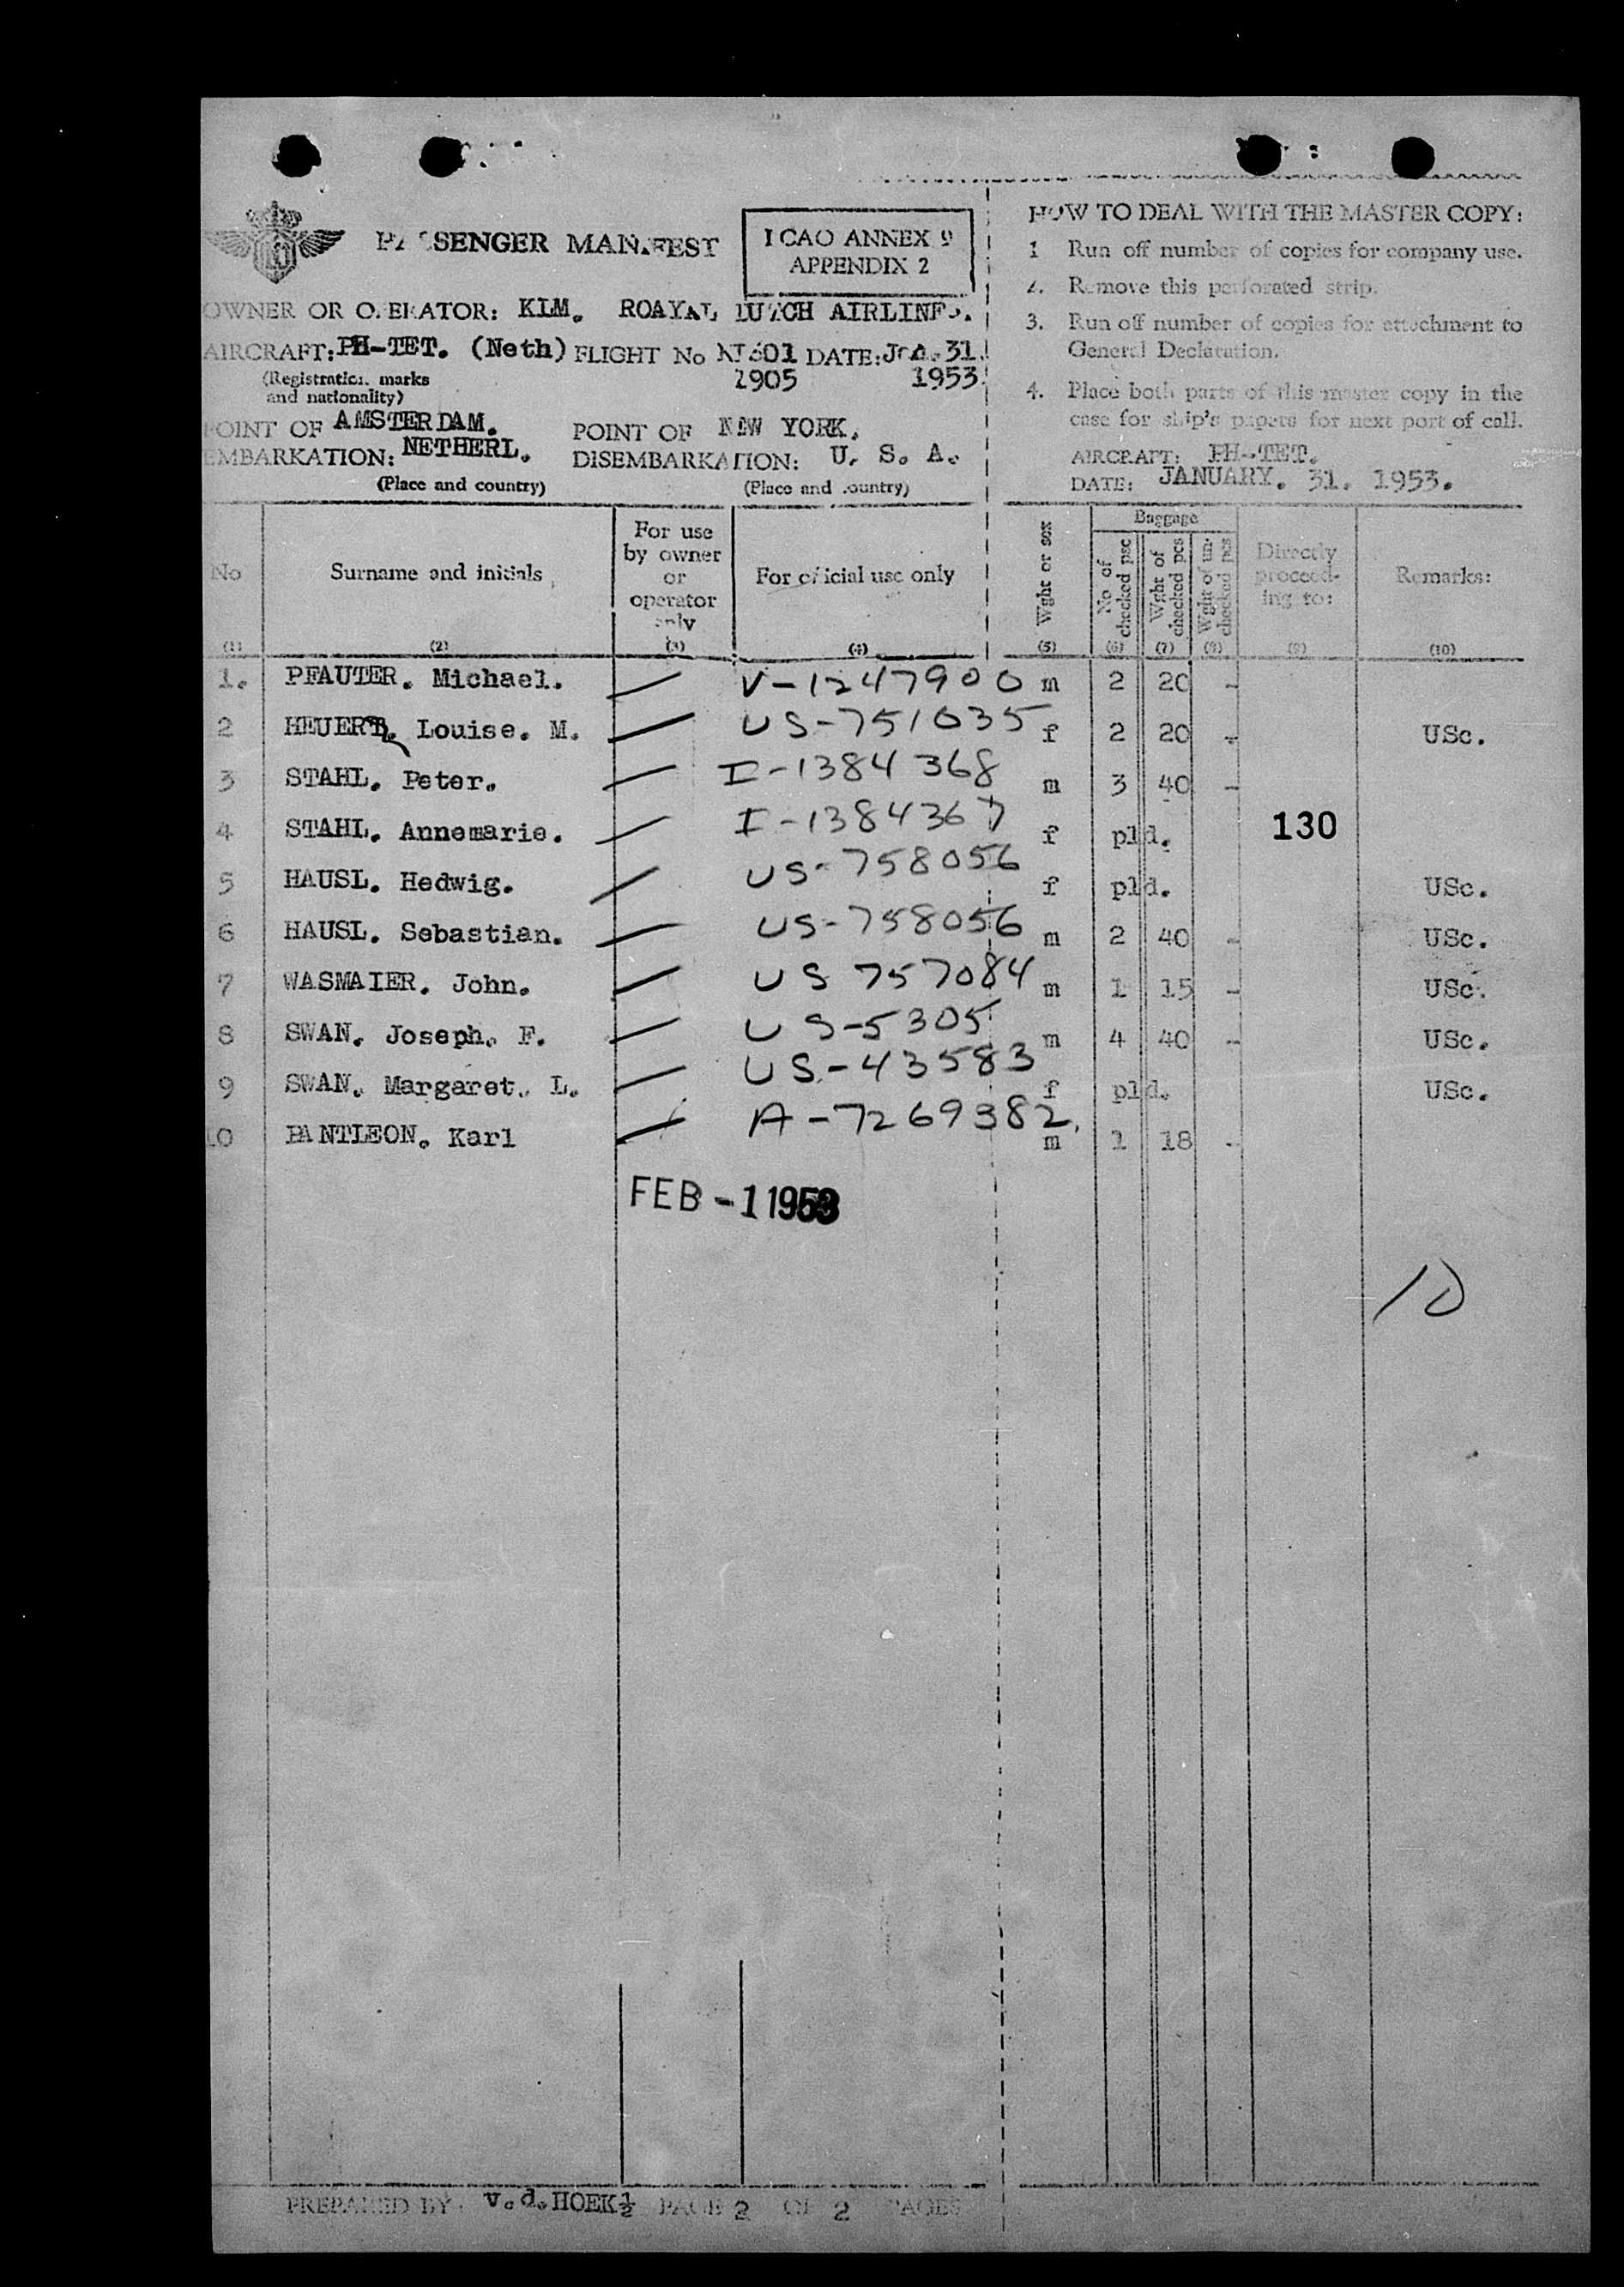 PASSENGER MANIFEST
I CAO ANNEX 9
APPENDIX 2
OWNER OR OPERATOR: KLM. ROAYAL DUTCH AIRLINES.
AIRCRAFT: PH-TET. (Neth) FLIGHT No DATE: Jan. 31.
(Registration marks
and nationality)
1953.
POINT OF
EMBARKATION: AMSTERDAM.
NETHERL.
(Place and country)
POINT OF
DISEMBARKATION: NEW YORK.
U. S. A.
(Place and country)
HOW TO DEAL WITH THE MASTER COPY:
1 Run off number of copies for company use.
2. Remove this perforated strip.
3. Run off number of copies for attachment to
General Declaration.
4. Place both parts of this master copy in the
case for ship's papers for next port of call.
AIRCRAFT: PH-TET.
DATE: JANUARY. 31. 1953.
No
(1)
Surname and initials
(2)
For use
by owner
or
operator
only
(3)
For official use only
(4)
Wght or sex
(5)
Baggage
No of
checked psc
(6)
Wght of
checked pcs
(7)
Wght of un-
checked pcs
Directly
proceed-
ing to:
(9)
Remarks:
(10)
1. PFAUTER. Michael. V-1247900 m 2 20 -
2 HEUERT. Louise. M. US-751035 f 2 20 - USc.
3 STAHL. Peter. I-1384368 m 3 40 -
4 STAHL. Annemarie. I-1384367 f pld. 130
5 HAUSL. Hedwig. US-758056 f pld. USc.
6 HAUSL. Sebastian. US-758056 m 2 40 - USc.
7 WASMAIER. John. US 757084 m 1 15 - USc.
8 SWAN. Joseph. F. US-5305 m 4 40 - USc.
9 SWAN. Margaret. L. US-43583 f pld. USc.
10 PANTLEON. Karl A-7269382. m 1 18 -
FEB -1 1953
10
PREPARED BY: v.d.HOEK½ PAGE 2 OF 2 PAGES